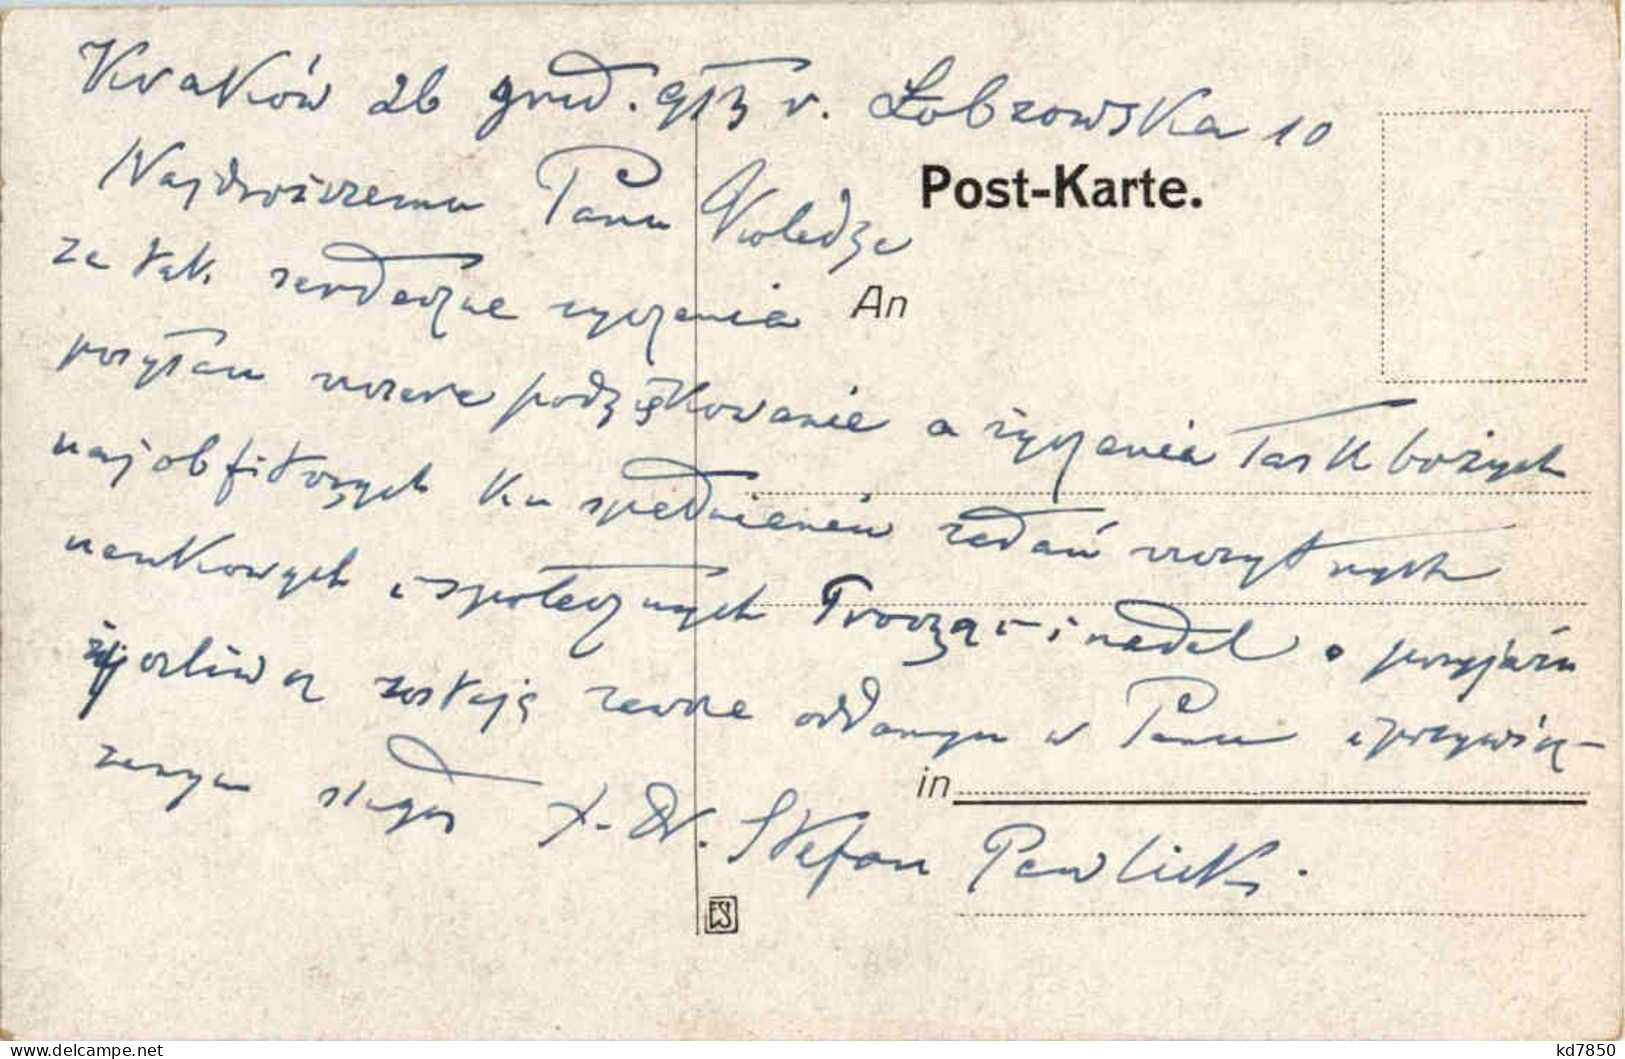 Kraków 26 grud. 913 r. Łobzowska 10
Najdroższemu Panu Koledze
Post-Karte.
za tak serdeczne życzenia
An
posyłam wzawe podziękowanie a życzenia łask bożych
najobfitszych ku spełnieniu zadań zaszczytnych
naukowych i społecznych Prosząc i nadal o przyjaźń
życzliwą zostaję zawsze oddanym w Panu i przywią-
in
zanym sługą X. Dr. Stefan Pawlicki.
ES
delcampe.net
kd7850